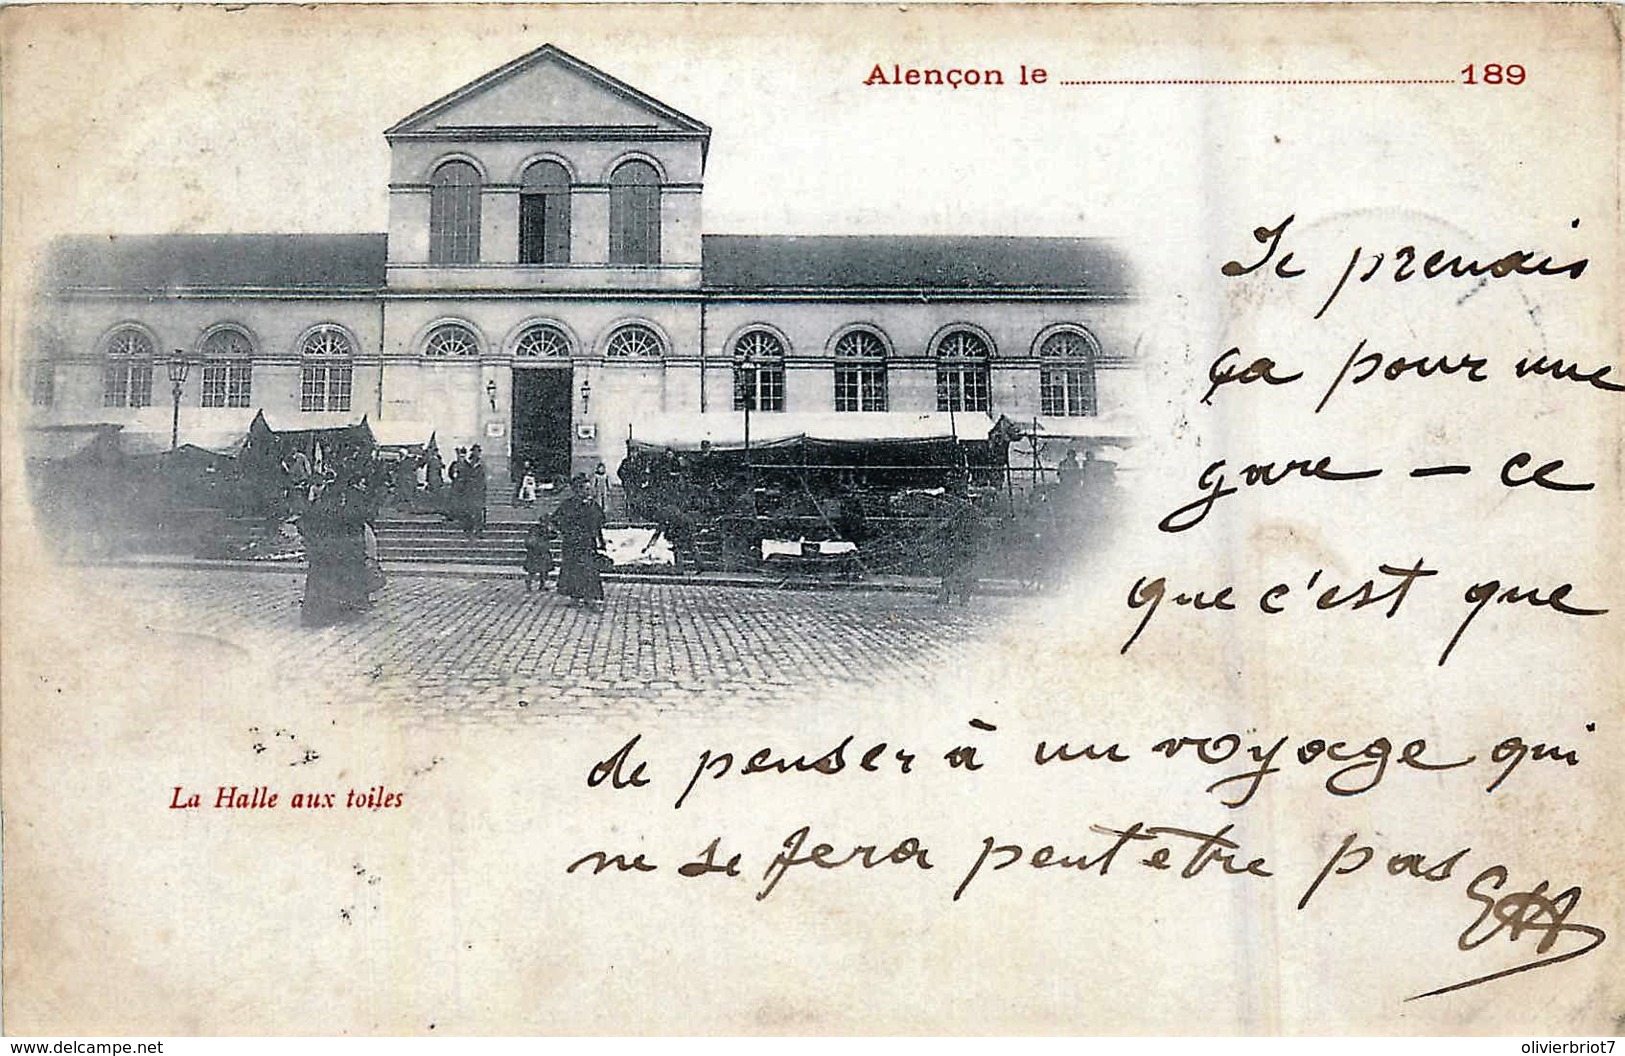 Alençon le 189
Je prenais
ça pour une
gare – ce
que c'est que
de penser à un voyage qui
ne se fera peut etre pas
La Halle aux toiles
www.delcampe.net
olivierbriot7